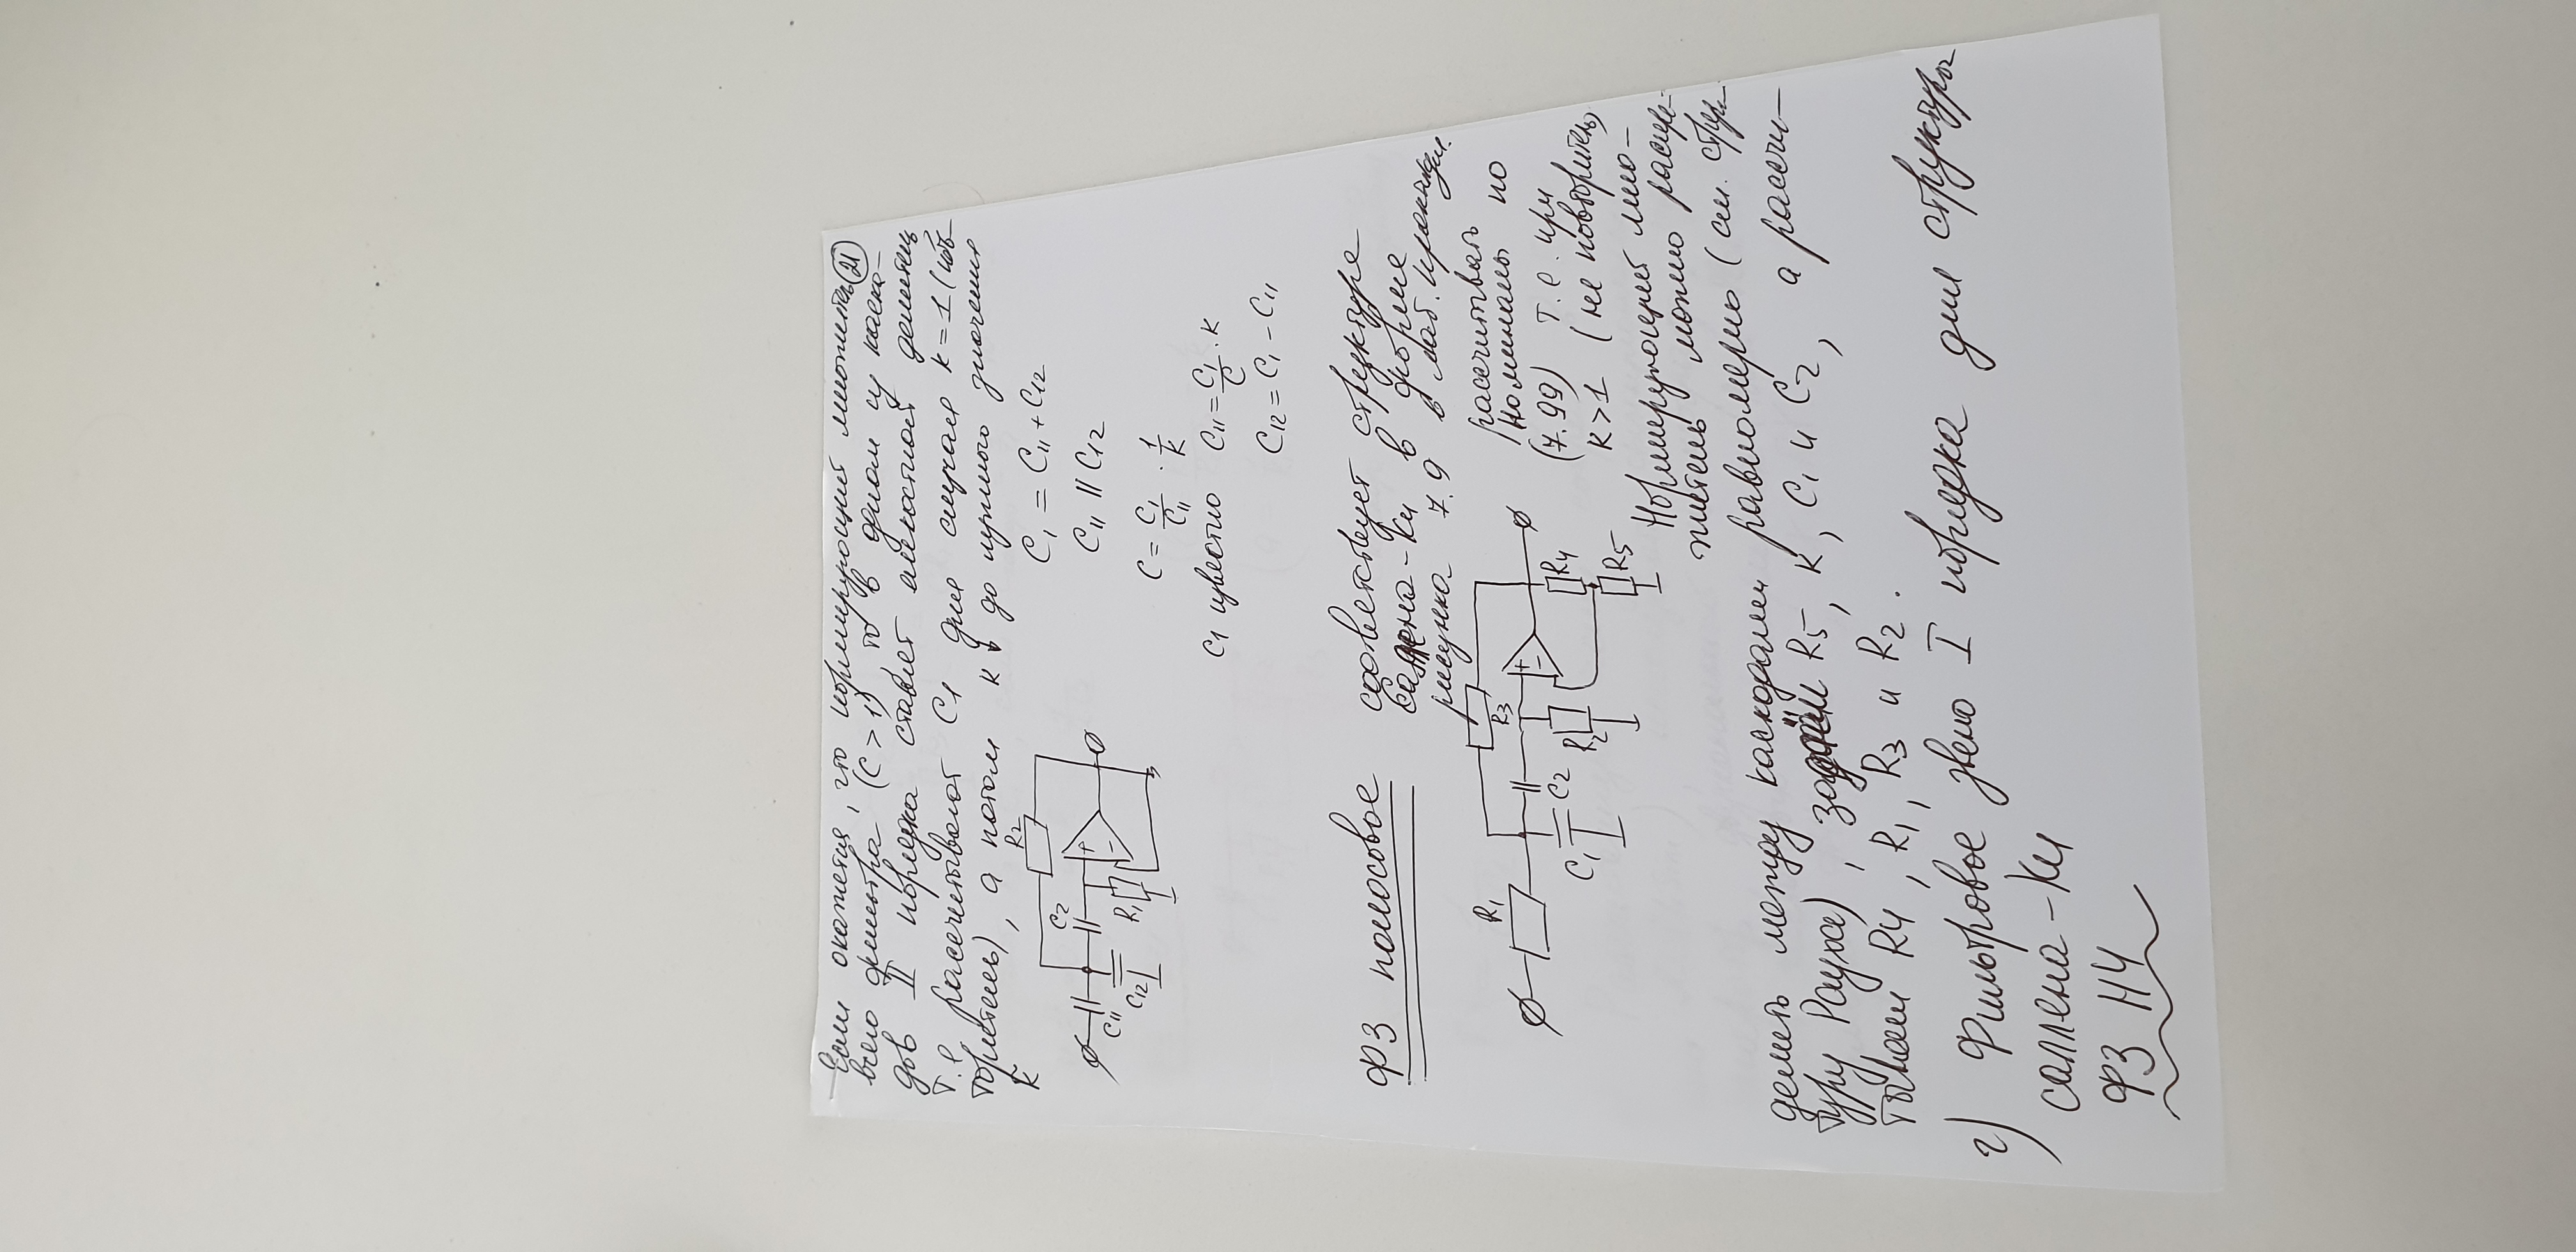 Если окажется, что нормирующий множитель (21)
всего фильтра (C > 1), то в одном из каска-
дов II порядка ставят емкостной делитель
т.е. рассчитывают C1 для случая K = 1 (пов-
торитель), а потом K ↓ до нужного значения
K
R2
C2
C11
C12
R1
+
-
C1 = C11 + C12
C11 || C12
C = C1/C11 · 1/K
C1 известно C11 = C1/C · K
C12 = C1 - C11
ФЗ полосовое соответствует структуре
Саллена-Ки в форме
рисунка 7.9 в лаб. практикум.
R1
R3
C1
C2
R2
+
-
R4
R5
рассчитвать
номиналы по
(7.99) т.е. при
K > 1 (не повторитель)
Нормирующий мно-
житель можно распре-
делить между каскадами равномерно (см. струк-
туру Рауха), задаём R5, K, C1 и C2, а рассчи-
тываем R4, R1, R3 и R2.
г) Фильтровое звено I порядка для структуры
Саллена-Ки
ФЗ НЧ